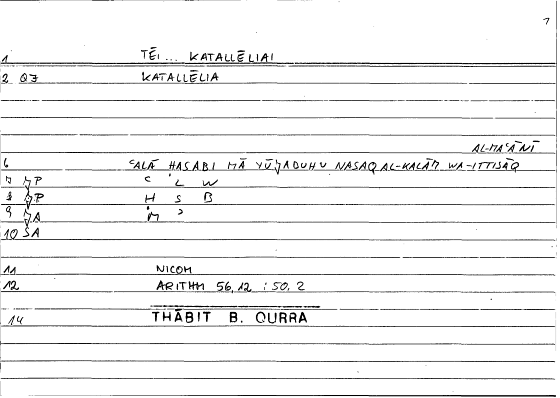 1
1 TĒI ... KATALLĒLIAI
2 QJ KATALLĒLIA
AL-MAʿĀNĪ
6 ʿALĀ ḤASABI MĀ YŪǦADUHU NASAQ AL-KALĀM WA-ITTISĀQ
7 P ʿ L W
8 P Ḥ S B
9 A M ʾ
10 SA
11 NICOM
12 ARITHM 56,12 : 50.2
14 THĀBIT B. QURRA